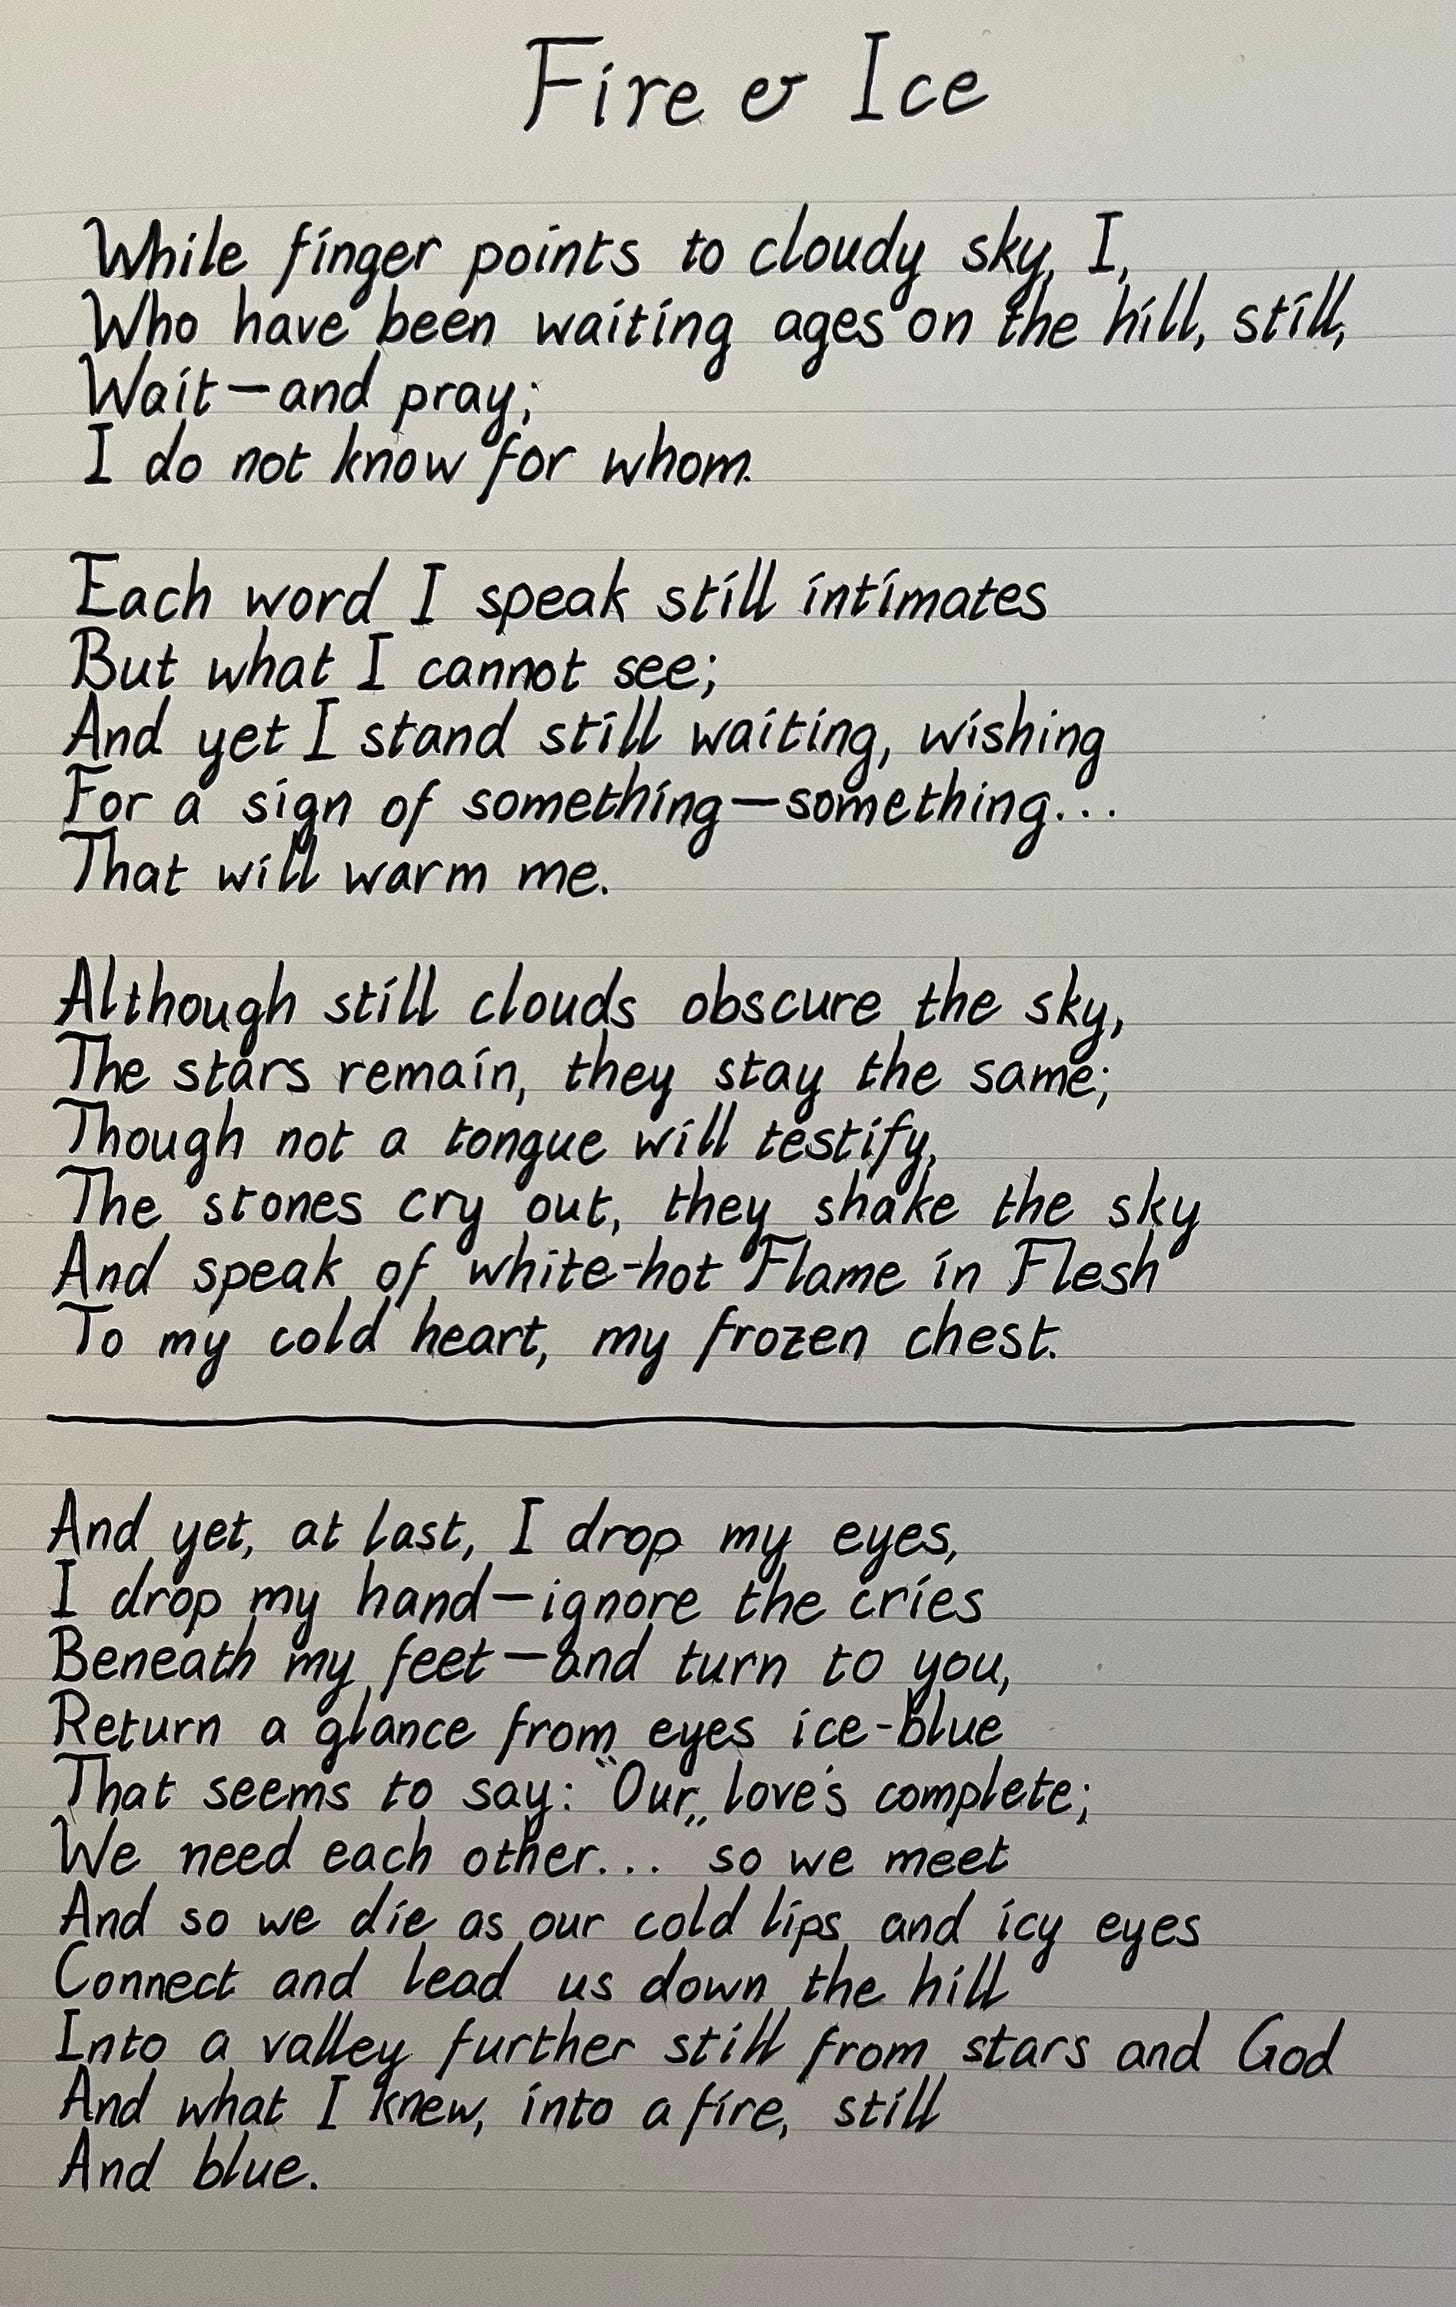 Fire & Ice
While finger points to cloudy sky, I,
Who have been waiting ages on the hill, still,
Wait—and pray;
I do not know for whom.
Each word I speak still intimates
But what I cannot see;
And yet I stand still waiting, wishing
For a sign of something—something...
That will warm me.
Although still clouds obscure the sky,
The stars remain, they stay the same;
Though not a tongue will testify,
The stones cry out, they shake the sky
And speak of white-hot Flame in Flesh
To my cold heart, my frozen chest.
And yet, at last, I drop my eyes,
I drop my hand—ignore the cries
Beneath my feet—and turn to you,
Return a glance from eyes ice-blue
That seems to say: "Our love's complete;
We need each other..." so we meet
And so we die as our cold lips and icy eyes
Connect and lead us down the hill
Into a valley further still from stars and God
And what I knew, into a fire, still
And blue.